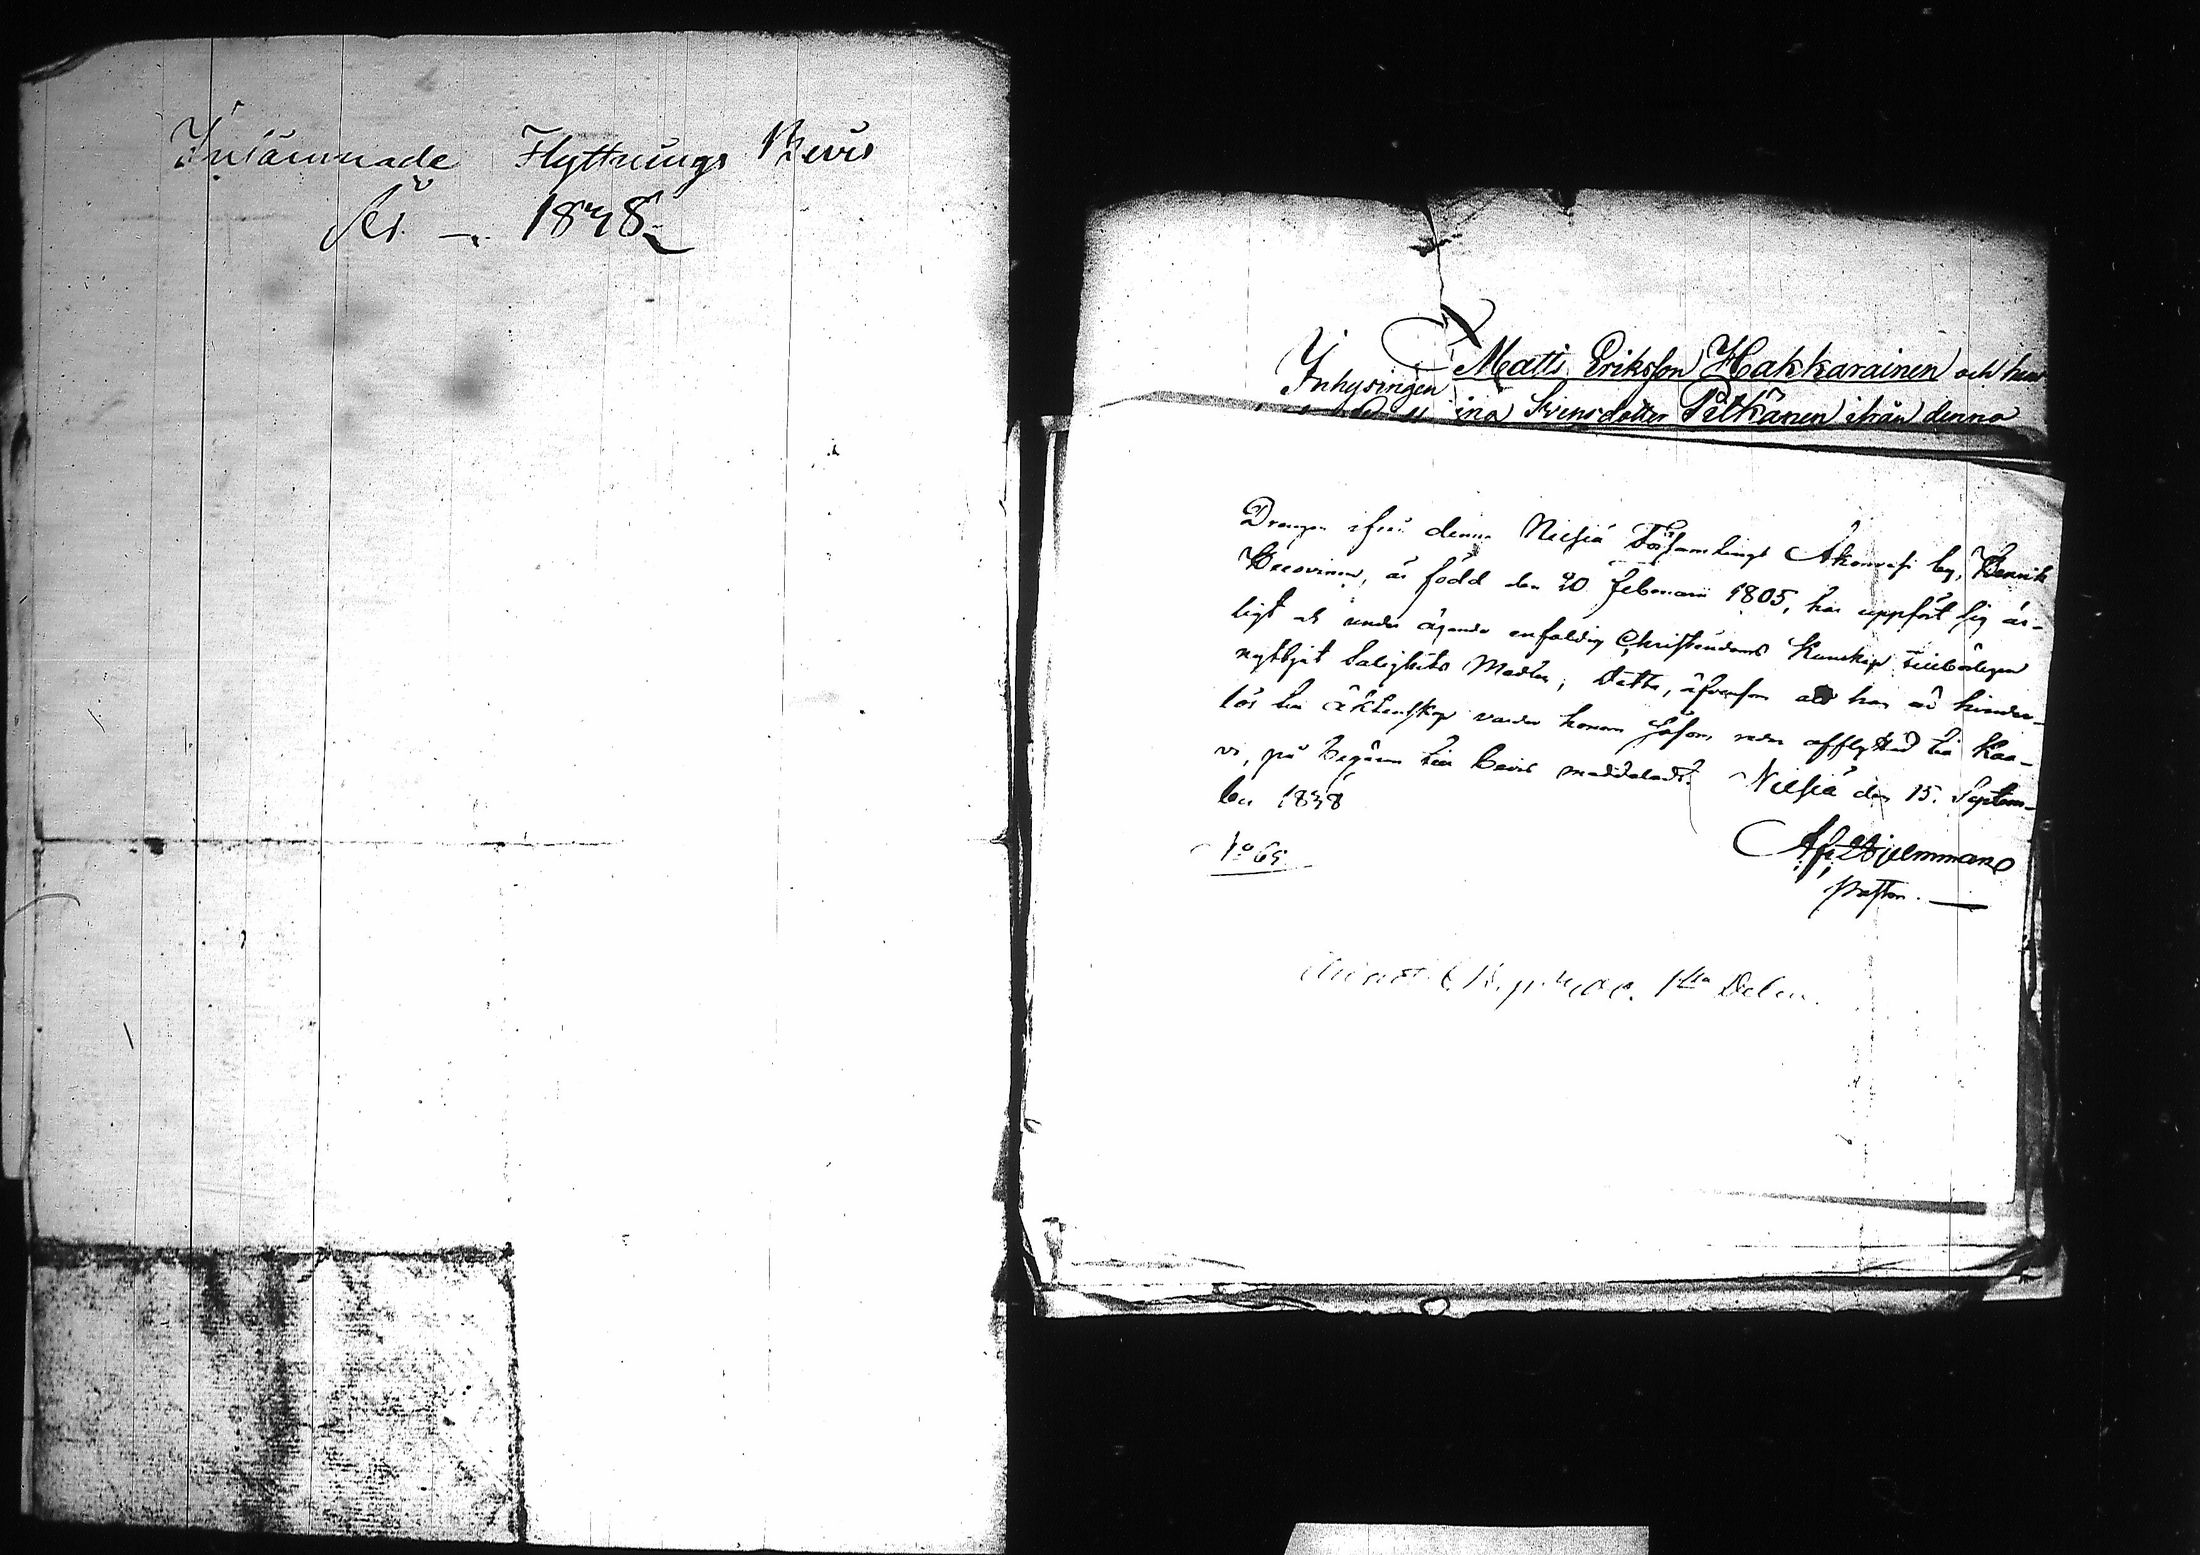 Inlämnade Flyttnings Bevis
År — 1838
Inhysingen Matts Eriksson Hakkarainen och hus
ina Svensdotter Pitkänen ifrån denna
Drängen ifrån denna Nilsiä Församlings Akonvesi by, Henrik
är född den 20 februarii 1805, har uppfört sig är-
ligt och under ägande enfaldig Christendoms Kunskap tillbörligen
nyttjat Salighets Medlen; Detta, äfvensom att han är hinder-
lös till äktenskap varder honom såsom nu afflyttad till Kaa-
vi, på begäran till bevis meddeladt. Nilsiä den 15. Septem-
ber 1838
No 65
Pastor.
1sta Delen.